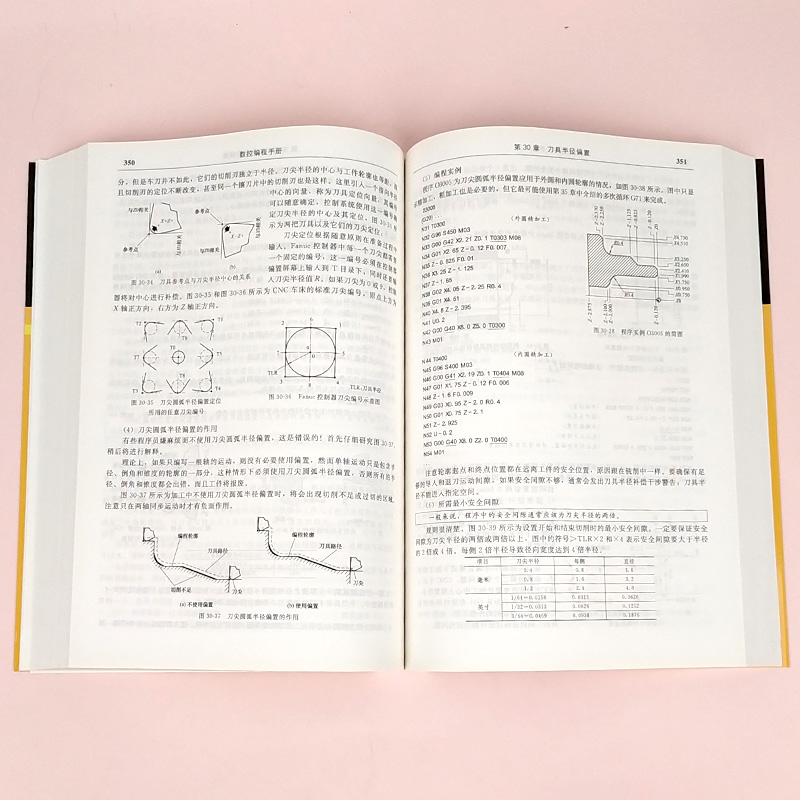 350
数控编程手册
分，但是车刀并不如此，它们的切削刃独立于半径。刀尖半径的中心与工件轮廓也等距，而
且切削刃的定位不断改变，甚至同一个镶刀片中的切削刃也是这样。这里引入一个指向半径
中心的向量，称为刀具定位向量，其编号
可以随意确定，控制系统使用这一编号确
定刀尖半径的中心及其定位。图30-34所
示为两把刀具以及它们的刀尖定位。
刀尖定位根据随意原则在准备过程中
输入，Fanuc控制器中每一个刀头都需要
一个固定的编号，这一编号必须在控制器
偏置屏幕上输到T目录下，同时还必须输
入刀尖半径值R。如果刀尖为0或9，控制
器将对中心进行补偿。图30-35和图30-36所示为CNC车床的标准刀尖编号，原点上方为
X轴正方向，右方为Z轴正方向。
与ZD相关
参考点
X-Z+
参考点
与XD相关
(a)
参考点
X-Z-
与ZB相关
与XB相关
(b)
图30-34 刀具参考点与刀尖半径中心的关系
T2 T6 T1
T7 T5
T3 T8 T4
图30-35 刀尖圆弧半径偏置定位
所用的任意刀尖编号
2 6 1
7 0 5
TLR
3 8 4
TLR:刀具半径
图30-36 Fanuc控制器刀尖编号示意图
(4) 刀尖圆弧半径偏置的作用
有些程序员嫌麻烦而不使用刀尖圆弧半径偏置，这是错误的！首先仔细研究图30-37，
稍后将进行解释。
理论上，如果只编写一根轴的运动，则没有必要使用偏置，然而单轴运动只是包含半
径、倒角和锥度的轮廓的一部分，这种情形下必须使用刀尖圆弧半径偏置，否则所有的半
径、倒角和锥度都会出错，而且工件将报废。
图30-37所示为加工中不使用刀尖圆弧半径偏置时，将会出现切削不足或过切的区域。
注意只在两轴同步运动时才有负面作用。
编程轮廓
刀具路径
切削不足
刀尖
(a) 不使用偏置
编程轮廓
刀具路径
刀尖
(b) 使用偏置
图30-37 刀尖圆弧半径偏置的作用
第30章 刀具半径偏置
351
(5) 编程实例
程序O3005为刀尖圆弧半径偏置应用于外圆和内圆轮廓的情况，如图30-38所示。图中只显
示精加工，粗加工也是必要的，但它最可能使用第35章中介绍的多次循环G71来完成。
N31 T0300 (外圆精加工)
N32 G96 S450 M03
N33 G00 G42 X2.21 Z0.1 T0303 M08
N34 G01 X2.65 Z-0.12 F0.007
N35 Z-0.825 F0.01
N36 X3.25 Z-1.125
N37 Z-1.85
N38 G02 X4.05 Z-2.25 R0.4
N39 G01 X4.51
N40 X4.8 Z-2.395
N41 U0.2
N42 G00 G40 X8.0 Z5.0 T0300
N43 M01
N44 T0400 (内圆精加工)
N45 G96 S400 M03
N46 G00 G41 X2.19 Z0.1 T0404 M08
N47 G01 X1.75 Z-0.12 F0.006
N48 Z-1.6 F0.009
N49 G03 X0.95 Z-2.0 R0.4
N50 G01 X0.75 Z-2.1
N51 Z-2.925
N52 U-0.2
N53 G00 G40 X8.0 Z2.0 T0400
N54 M01
R0.4
R0.4
图30-38 程序实例O3005的简图
注意轮廓起点和终点位置都在远离工件的安全位置，原因跟在铣削中一样。要确保有足
够的导入和退刀运动间隙，如果安全间隙不够，通常会发出刀具半径补偿干涉警告，刀具半
径不能进入指定空间。
(6) 所需最小安全间隙
一般来说，程序中的安全间隙通常应该为刀尖半径的两倍。
规则很清楚。图30-39所示为设置开始和结束切削时的最小安全间隙。一定要保证安全
间隙为刀尖半径的两倍或两倍以上，图中的符号>TLR×2和×4表示安全间隙要大于半径
的2倍或4倍。每侧2倍半径导致径向宽度达到4倍半径。
项目 刀尖半径 每侧 直径
毫米 0.4 0.8 1.6
0.8 1.6 3.2
1.2 2.4 4.8
英寸 1/64=0.0156 0.0313 0.0626
1/32=0.0313 0.0626 0.1252
3/64=0.0469 0.0938 0.1876